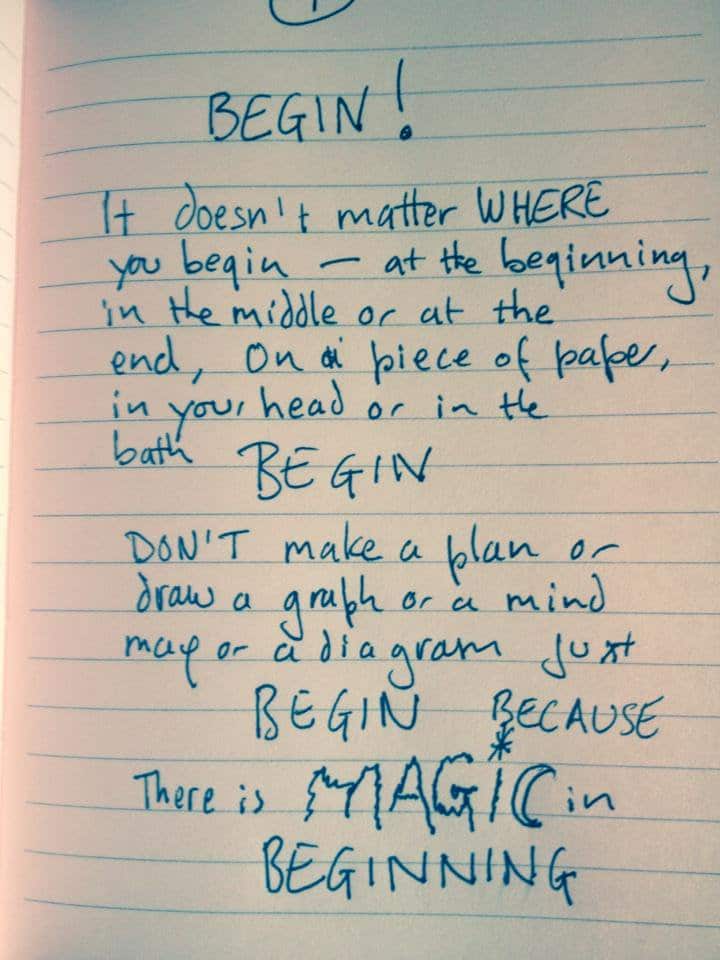 BEGIN!
It doesn't matter WHERE
you begin — at the beginning,
in the middle or at the
end, On a piece of paper,
in your head or in the
bath BEGIN
DON'T make a plan or
draw a graph or a mind
map or a diagram Just
BEGIN BECAUSE
There is MAGIC in
BEGINNING